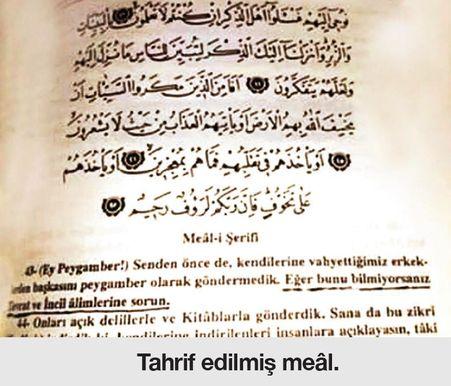 نُوحِى اِلَيْهِمْ فَسْئَلُوا اَهْلَ الذِّكْرِ اِنْ كُنْتُمْ لَا تَعْلَمُونَ
وَالزُّبُرِ وَاَنْزَلْنَا اِلَيْكَ الذِّكْرَ لِتُبَيِّنَ لِلنَّاسِ مَا نُزِّلَ اِلَيْهِمْ
وَلَعَلَّهُمْ يَتَفَكَّرُونَ اَفَاَمِنَ الَّذِينَ مَكَرُوا السَّيِّئَاتِ اَنْ
يَخْسِفَ اللّٰهُ بِهِمُ الْاَرْضَ اَوْ يَاْتِيَهُمُ الْعَذَابُ مِنْ حَيْثُ لَا يَشْعُرُونَ
اَوْ يَاْخُذَهُمْ فِى تَقَلُّبِهِمْ فَمَا هُمْ بِمُعْجِزِينَ اَوْ يَاْخُذَهُمْ
عَلٰى تَخَوُّفٍ فَاِنَّ رَبَّكُمْ لَرَؤُفٌ رَحِيمٌ
Meâl-i Şerifi
43- (Ey Peygamber!) Senden önce de, kendilerine vahyettiğimiz erkek-
lerden başkasını peygamber olarak göndermedik. Eğer bunu bilmiyorsanız
Tevrat ve İncil âlimlerine sorun.
44- Onları açık delillerle ve Kitâblarla gönderdik. Sana da bu zikri
kendilerine indirilenleri insanlara açıklayasın, tâki
Tahrif edilmiş meâl.